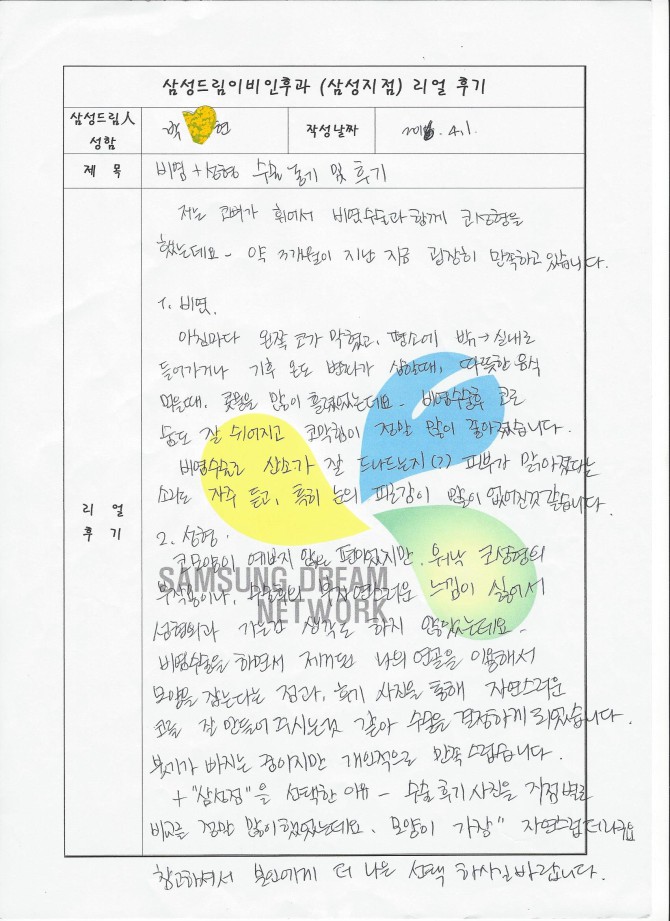 삼성드림이비인후과 (삼성지점) 리얼 후기
삼성드림人 성함
박 연
작성날짜
4.1.
제 목
비염+성형 수술 동기 및 후기
리 얼 후 기
저는 코뼈가 휘어서 비염수술과 함께 코성형을
했는데요- 약 3개월이 지난 지금 굉장히 만족하고 있습니다.
1. 비염.
아침마다 왼쪽 코가 막혔고, 평소에 밖→실내로
들어가거나 기후 온도 변화가 심할때, 따뜻한 음식
먹을때, 콧물을 많이 흘렸었는데요- 비염수술후 코로
숨도 잘 쉬어지고 코막힘이 정말 많이 좋아졌습니다.
비염수술로 산소가 잘 드나드는지(?) 피부가 맑아졌다는
소리도 자주 듣고, 특히 눈의 피로감이 많이 없어진것 같습니다.
2. 성형.
코모양이 예쁘지 않은 편이었지만, 워낙 코성형의
부작용이나, 부자연스러운 느낌이 싫어서
성형외과 가는건 생각도 하지 않았는데요-
비염수술을 하면서 제거된 나의 연골을 이용해서
모양을 잡는다는 점과, 후기 사진을 통해 자연스러운
코를 잘 만들어 주시는것 같아 수술을 결정하게 되었습니다.
붓기가 빠지는 중이지만 개인적으로 만족스럽습니다.
+ "삼성점"을 선택한 이유 - 수술 후기 사진을 지점별로
비교를 정말 많이 했었는데요. 모양이 가장" 자연스럽더라구요
참고하셔서 본인에게 더 나은 선택 하시길 바랍니다.
SAMSUNG DREAM
NETWORK